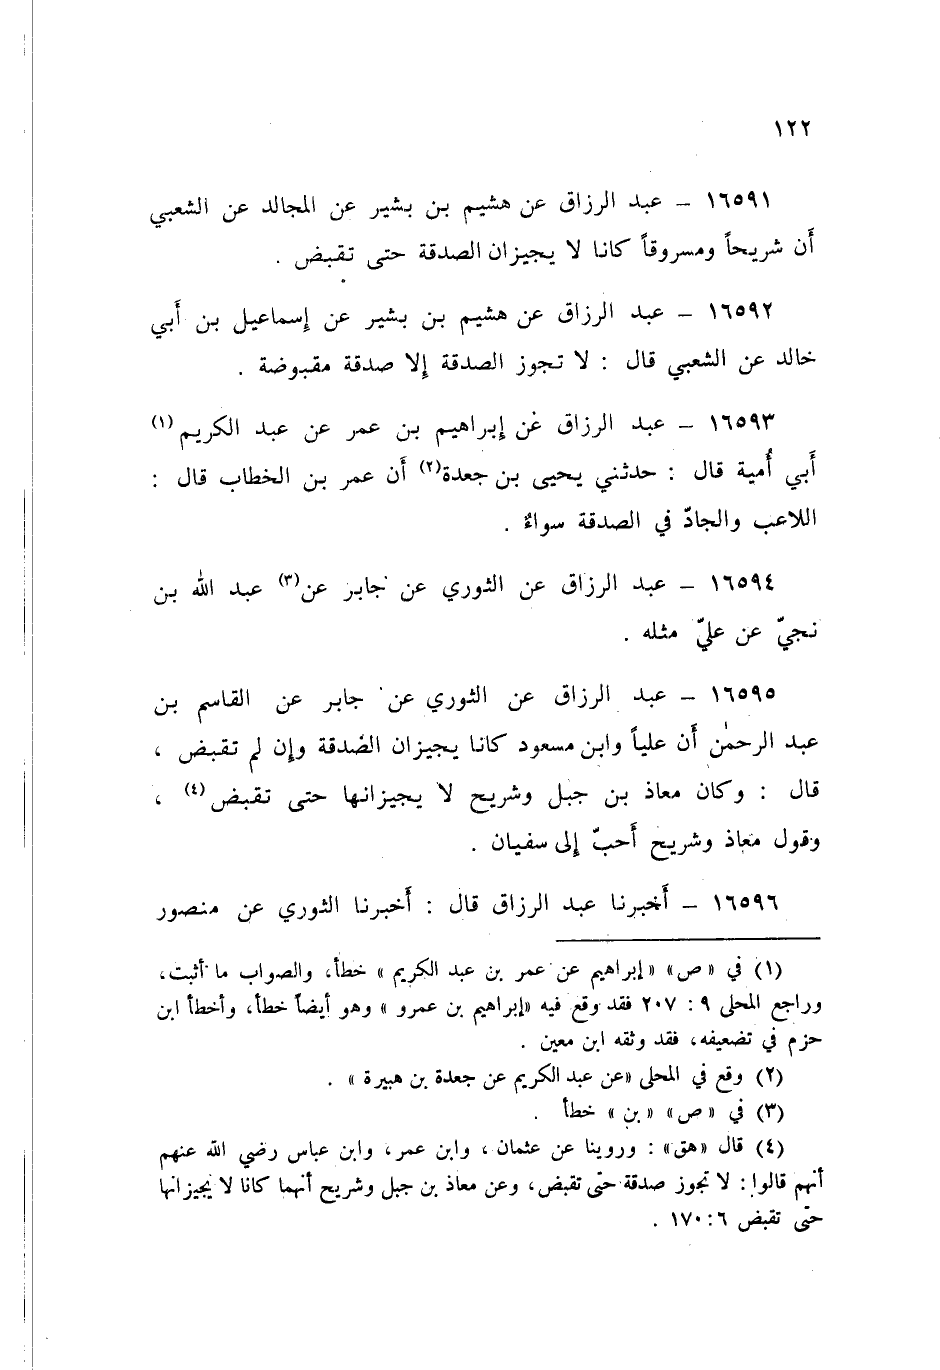 ١٢٢
١٦٥٩١ – عبد الرزاق عن هشيم بن بشير عن المجالد عن الشعبي
أَن شريحاً ومسروقاً كانا لا يجيزان الصدقة حتى تقبض .
١٦٥٩٢ – عبد الرزاق عن هشيم بن بشير عن إسماعيل بن أَبي
خالد عن الشعبي قال : لا تجوز الصدقة إلا صدقة مقبوضة .
١٦٥٩٣ – عبد الرزاق عن إبراهيم بن عمر عن عبد الكريم (١)
أَبي أُمية قال : حدثني يحيى بن جعدة(٢) أَن عمر بن الخطاب قال :
اللاعب والجادّ في الصدقة سواءٌ .
١٦٥٩٤ – عبد الرزاق عن الثوري عن جابر عن(٣) عبد الله بن
نجيّ عن عليّ مثله .
١٦٥٩٥ – عبد الرزاق عن الثوري عن جابر عن القاسم بن
عبد الرحمٰن أَن علياً وابن مسعود كانا يجيزان الصدقة وإن لم تقبض ،
قال : وكان معاذ بن جبل وشريح لا يجيزانها حتى تقبض (٤) ،
وقول معاذ وشريح أَحبّ إلى سفيان .
١٦٥٩٦ – أَخبرنا عبد الرزاق قال : أَخبرنا الثوري عن منصور
(١) في « ص » « إبراهيم عن عمر بن عبد الكريم » خطأ، والصواب ما أثبت،
وراجع المحلى ٩ : ٢٠٧ فقد وقع فيه «إبراهيم بن عمرو » وهو أيضاً خطأ، وأخطأ ابن
حزم في تضعيفه، فقد وثقه ابن معين .
(٢) وقع في المحلى «عن عبد الكريم عن جعدة بن هبيرة » .
(٣) في « ص » « بن » خطأ .
(٤) قال «هق» : وروينا عن عثمان ، وابن عمر، وابن عباس رضي الله عنهم
أنهم قالوا : لا تجوز صدقة حتى تقبض، وعن معاذ بن جبل وشريح أنهما كانا لا يجيزانها
حتّى تقبض ٦ : ١٧٠ .